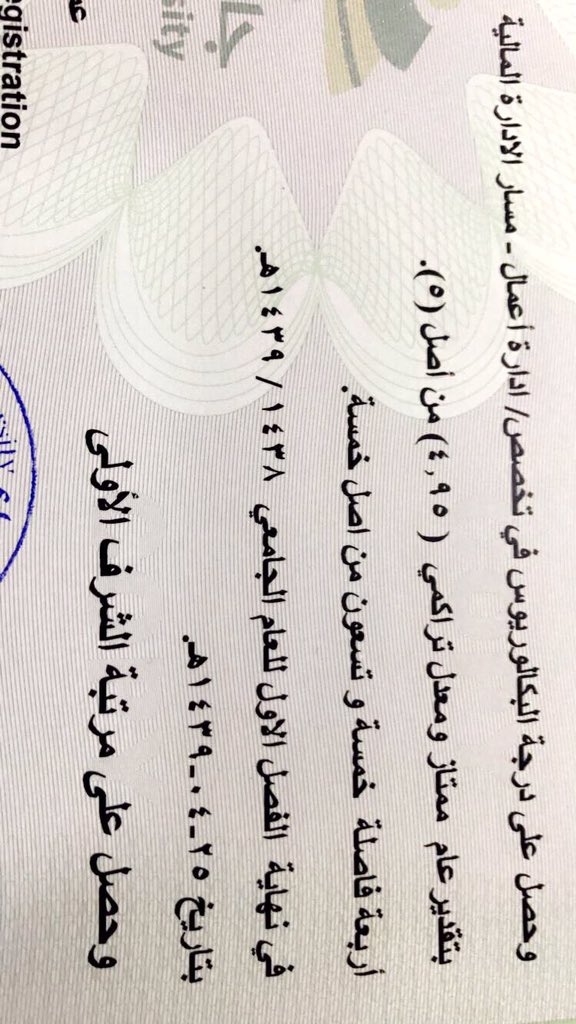 وحصل على درجة البكالوريوس في تخصص/ ادارة أعمال - مسار الادارة المالية
بتقدير عام ممتاز ومعدل تراكمي (٤,٩٥) من أصل (٥).
أربعة فاصلة خمسة و تسعون من اصل خمسة.
في نهاية الفصل الاول للعام الجامعي ١٤٣٨ / ١٤٣٩هـ.
بتاريخ ٢٥-٠٤-١٤٣٩هـ.
وحصل على مرتبة الشرف الأولى
جا
sity
عم
egistration